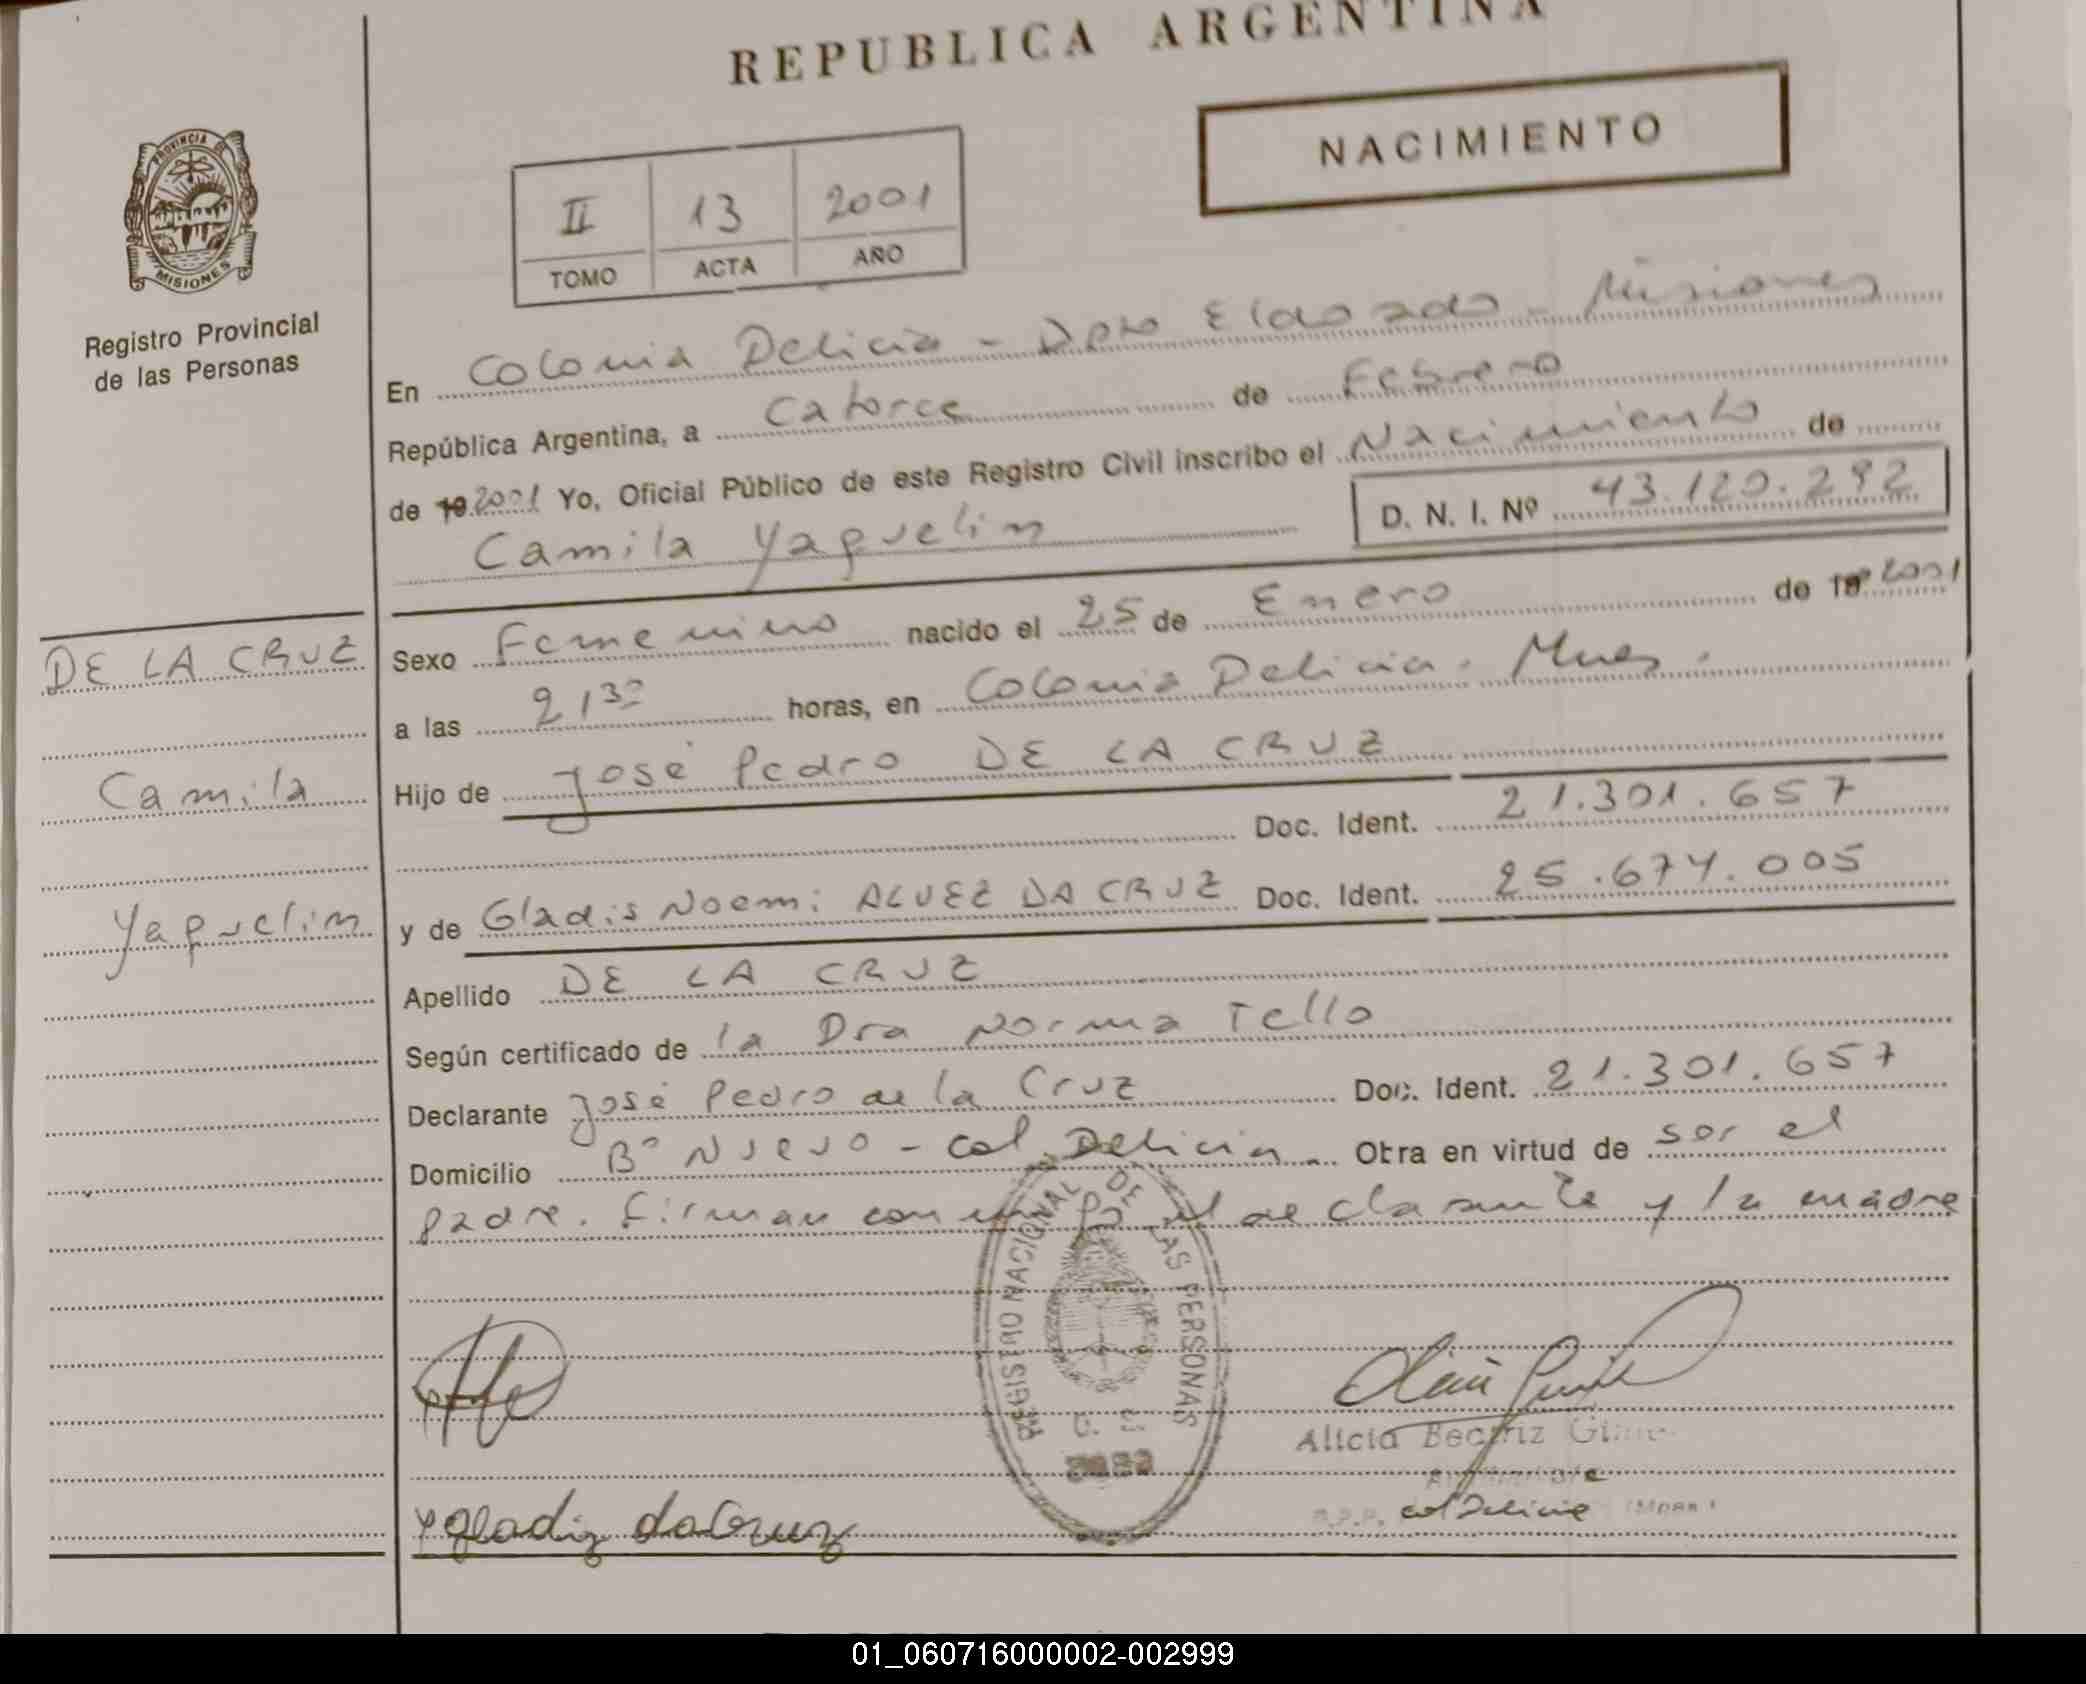 REPUBLICA ARGENTINA
NACIMIENTO
II 13 2001
TOMO ACTA AÑO
PROVINCIA DE MISIONES
Registro Provincial
de las Personas
En Colonia Delicia - Dpto Eldorado - Misiones
República Argentina, a Catorce de Febrero
de 19 2001 Yo, Oficial Público de este Registro Civil inscribo el Nacimiento de
Camila Yaquelin
D. N. I. Nº 43.120.292
DE LA CRUZ
Camila
Yaquelin
Sexo Femenino nacido el 25 de Enero de 19 2001
a las 21 30 horas, en Colonia Delicia. Mnes.
Hijo de José Pedro DE LA CRUZ
Doc. Ident. 21.301.657
y de Gladis Noemi ALVEZ DA CRUZ Doc. Ident. 25.674.005
Apellido DE LA CRUZ
Según certificado de la Dra Norma Tello
Declarante José Pedro de la Cruz Doc. Ident. 21.301.657
Domicilio Bº Nuevo - Col Delicia Otra en virtud de ser el
padre. Firman conmigo el declarante y la madre
REGISTRO NACIONAL DE LAS PERSONAS
Alicia Beatriz
gladiz daCruz
col Delicia
01_060716000002-002999